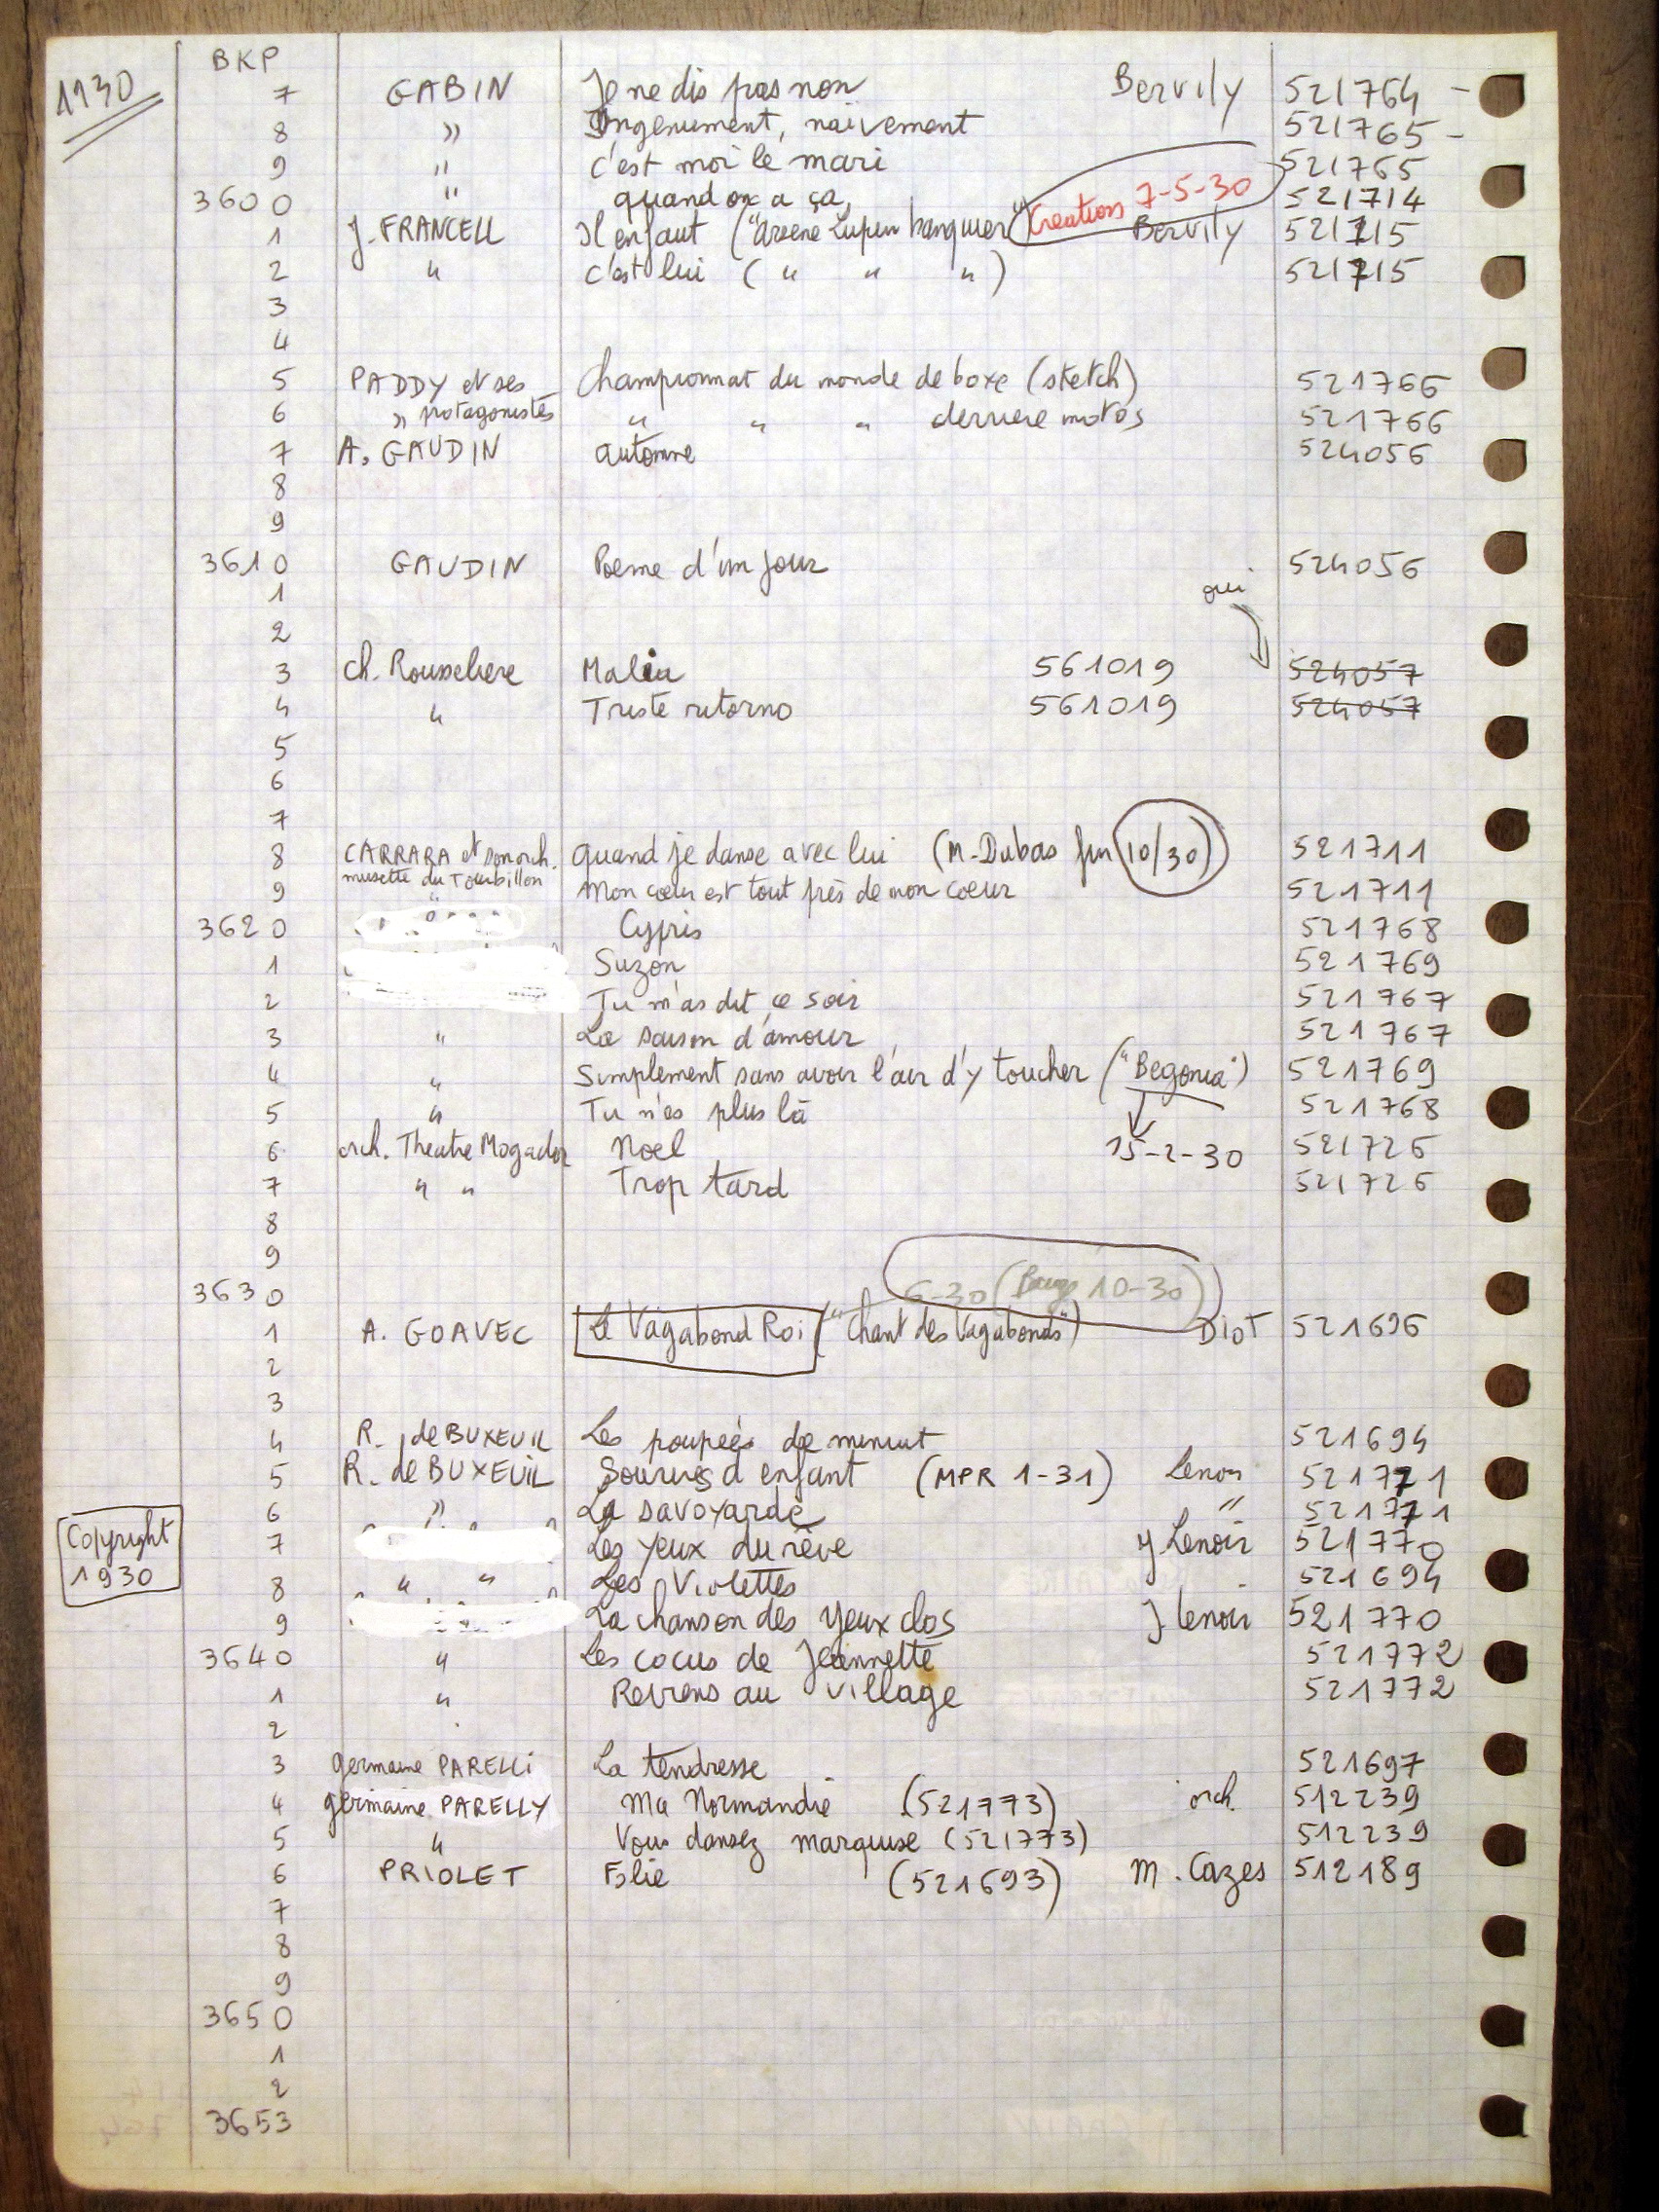 1930
BKP
7 GABIN Je ne dis pas non Bervily 521764 -
8 " Ingenument, naïvement 521765 -
9 " C'est moi le mari 521765
3600 " quand on a ça, 521714
Creation 7-5-30
1 J. FRANCELL Il en faut ("Arsene Lupin banquier" Bervily 521715
2 " C'est lui ( " " " ) 521715
3
4
5 PADDY et ses Championnat du monde de boxe (sketch) 521766
6 " protagonistes " " " derriere motos 521766
7 A. GAUDIN Automne 524056
8
9
3610 GAUDIN Poeme d'un jour 524056
1 oui
2
3 Ch. Rousseliere Malia 561019 524057
4 " Triste ritorno 561019 524057
5
6
7
8 CARRARA et son orch. Quand je danse avec lui (M. Dubas fin 10/30) 521711
musette du Tourbillon
9 " Mon cœur est tout près de mon coeur 521711
3620 Cypris 521768
1 Suzon 521769
2 Tu m'as dit ce soir 521767
3 " La saison d'amour 521767
4 " Simplement sans avoir l'air d'y toucher ("Begonia") 521769
5 " Tu n'es plus là 521768
6 orch. Theatre Mogador Noel 15-2-30 521726
7 " " Trop tard 521726
8
9
3630 6-30 ( 10-30)
1 A. GOAVEC Le Vagabond Roi ("Chant des Vagabonds") Diot 521696
2
3
4 R. de BUXEUIL Les poupées de minuit 521694
5 R. de BUXEUIL Sourires d'enfant (MPR 1-31) Lenoir 521771
6 " La savoyarde " 521771
Copyright
1930
7 Les yeux du rève J Lenoir 521770
8 " " Les Violettes 521694
9 La chanson des yeux clos J Lenoir 521770
3640 " Les cocus de Jeannette 521772
1 " Reviens au village 521772
2
3 Germaine PARELLI La tendresse 521697
4 germaine PARELLY Ma Normandie (521773) orch. 512239
5 " Vous dansez marquise (521773) 512239
6 PRIOLET Folie (521693) M. Cazes 512189
7
8
9
3650
1
2
3653